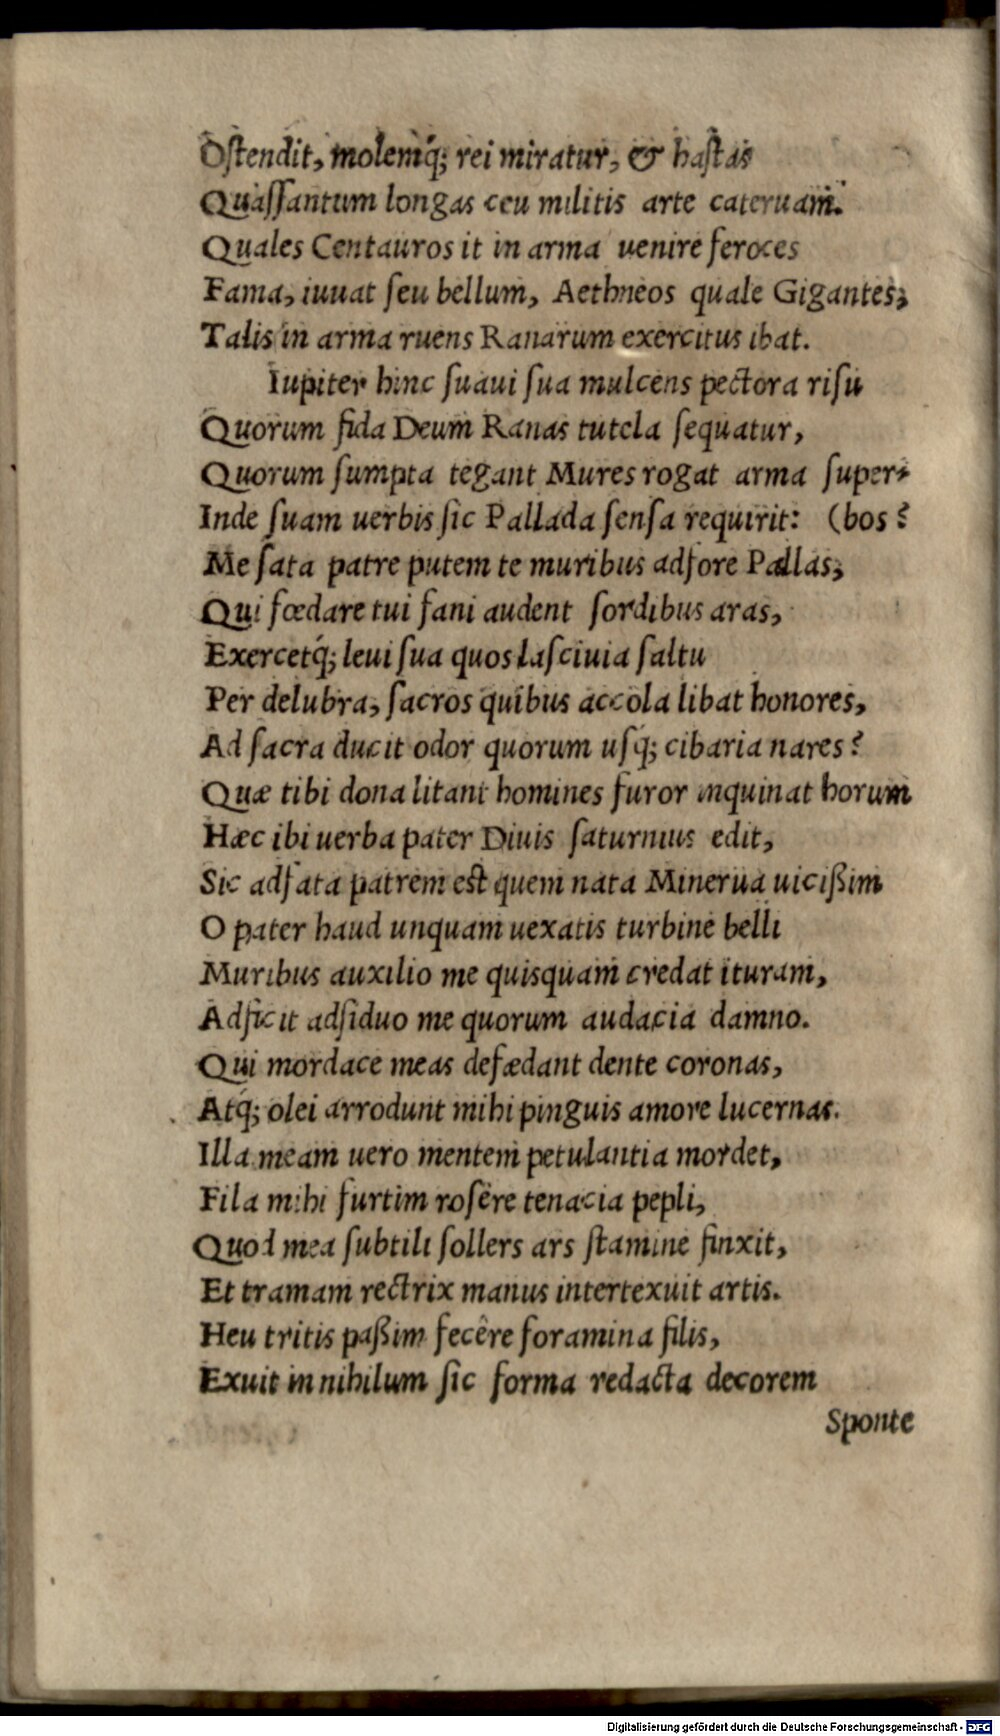 Oſtendit, molemq́; rei miratur, & haſtas
Quaſſantum longas ceu militis arte cateruam.
Quales Centauros it in arma uenire feroces
Fama, iuuat ſeu bellum, Aethneos quale Gigantes;
Talis in arma ruens Ranarum exercitus ibat.
Iupiter hinc ſuaui ſua mulcens pectora riſu
Quorum fida Deum Ranas tutela ſequatur,
Quorum ſumpta tegant Mures rogat arma ſuper-
Inde ſuam uerbis ſic Pallada ſenſa requirit: (bos?
Me ſata patre putem te muribus adfore Pallas;
Qui fœdare tui fani audent ſordibus aras,
Exercetq́; leui ſua quos laſciuia ſaltu
Per delubra, ſacros quibus accola libat honores,
Ad ſacra ducit odor quorum uſq́; cibaria nares?
Quæ tibi dona litant homines furor inquinat horum
Hæc ibi uerba pater Diuis ſaturnius edit,
Sic adfata patrem eſt quem nata Minerua uicißim
O pater haud unquam uexatis turbine belli
Muribus auxilio me quisquam credat ituram,
Adficit adſiduo me quorum audacia damno.
Qui mordace meas defædant dente coronas,
Atq́; olei arrodunt mihi pinguis amore lucernas.
Illa meam uero mentem petulantia mordet,
Fila mihi furtim roſêre tenacia pepli,
Quod mea ſubtili ſollers ars ſtamine finxit,
Et tramam rectrix manus intertexuit artis.
Heu tritis paßim fecêre foramina filis,
Exuit in nihilum ſic forma redacta decorem
Sponte
Digitalisierung gefördert durch die Deutsche Forschungsgemeinschaft - DFG